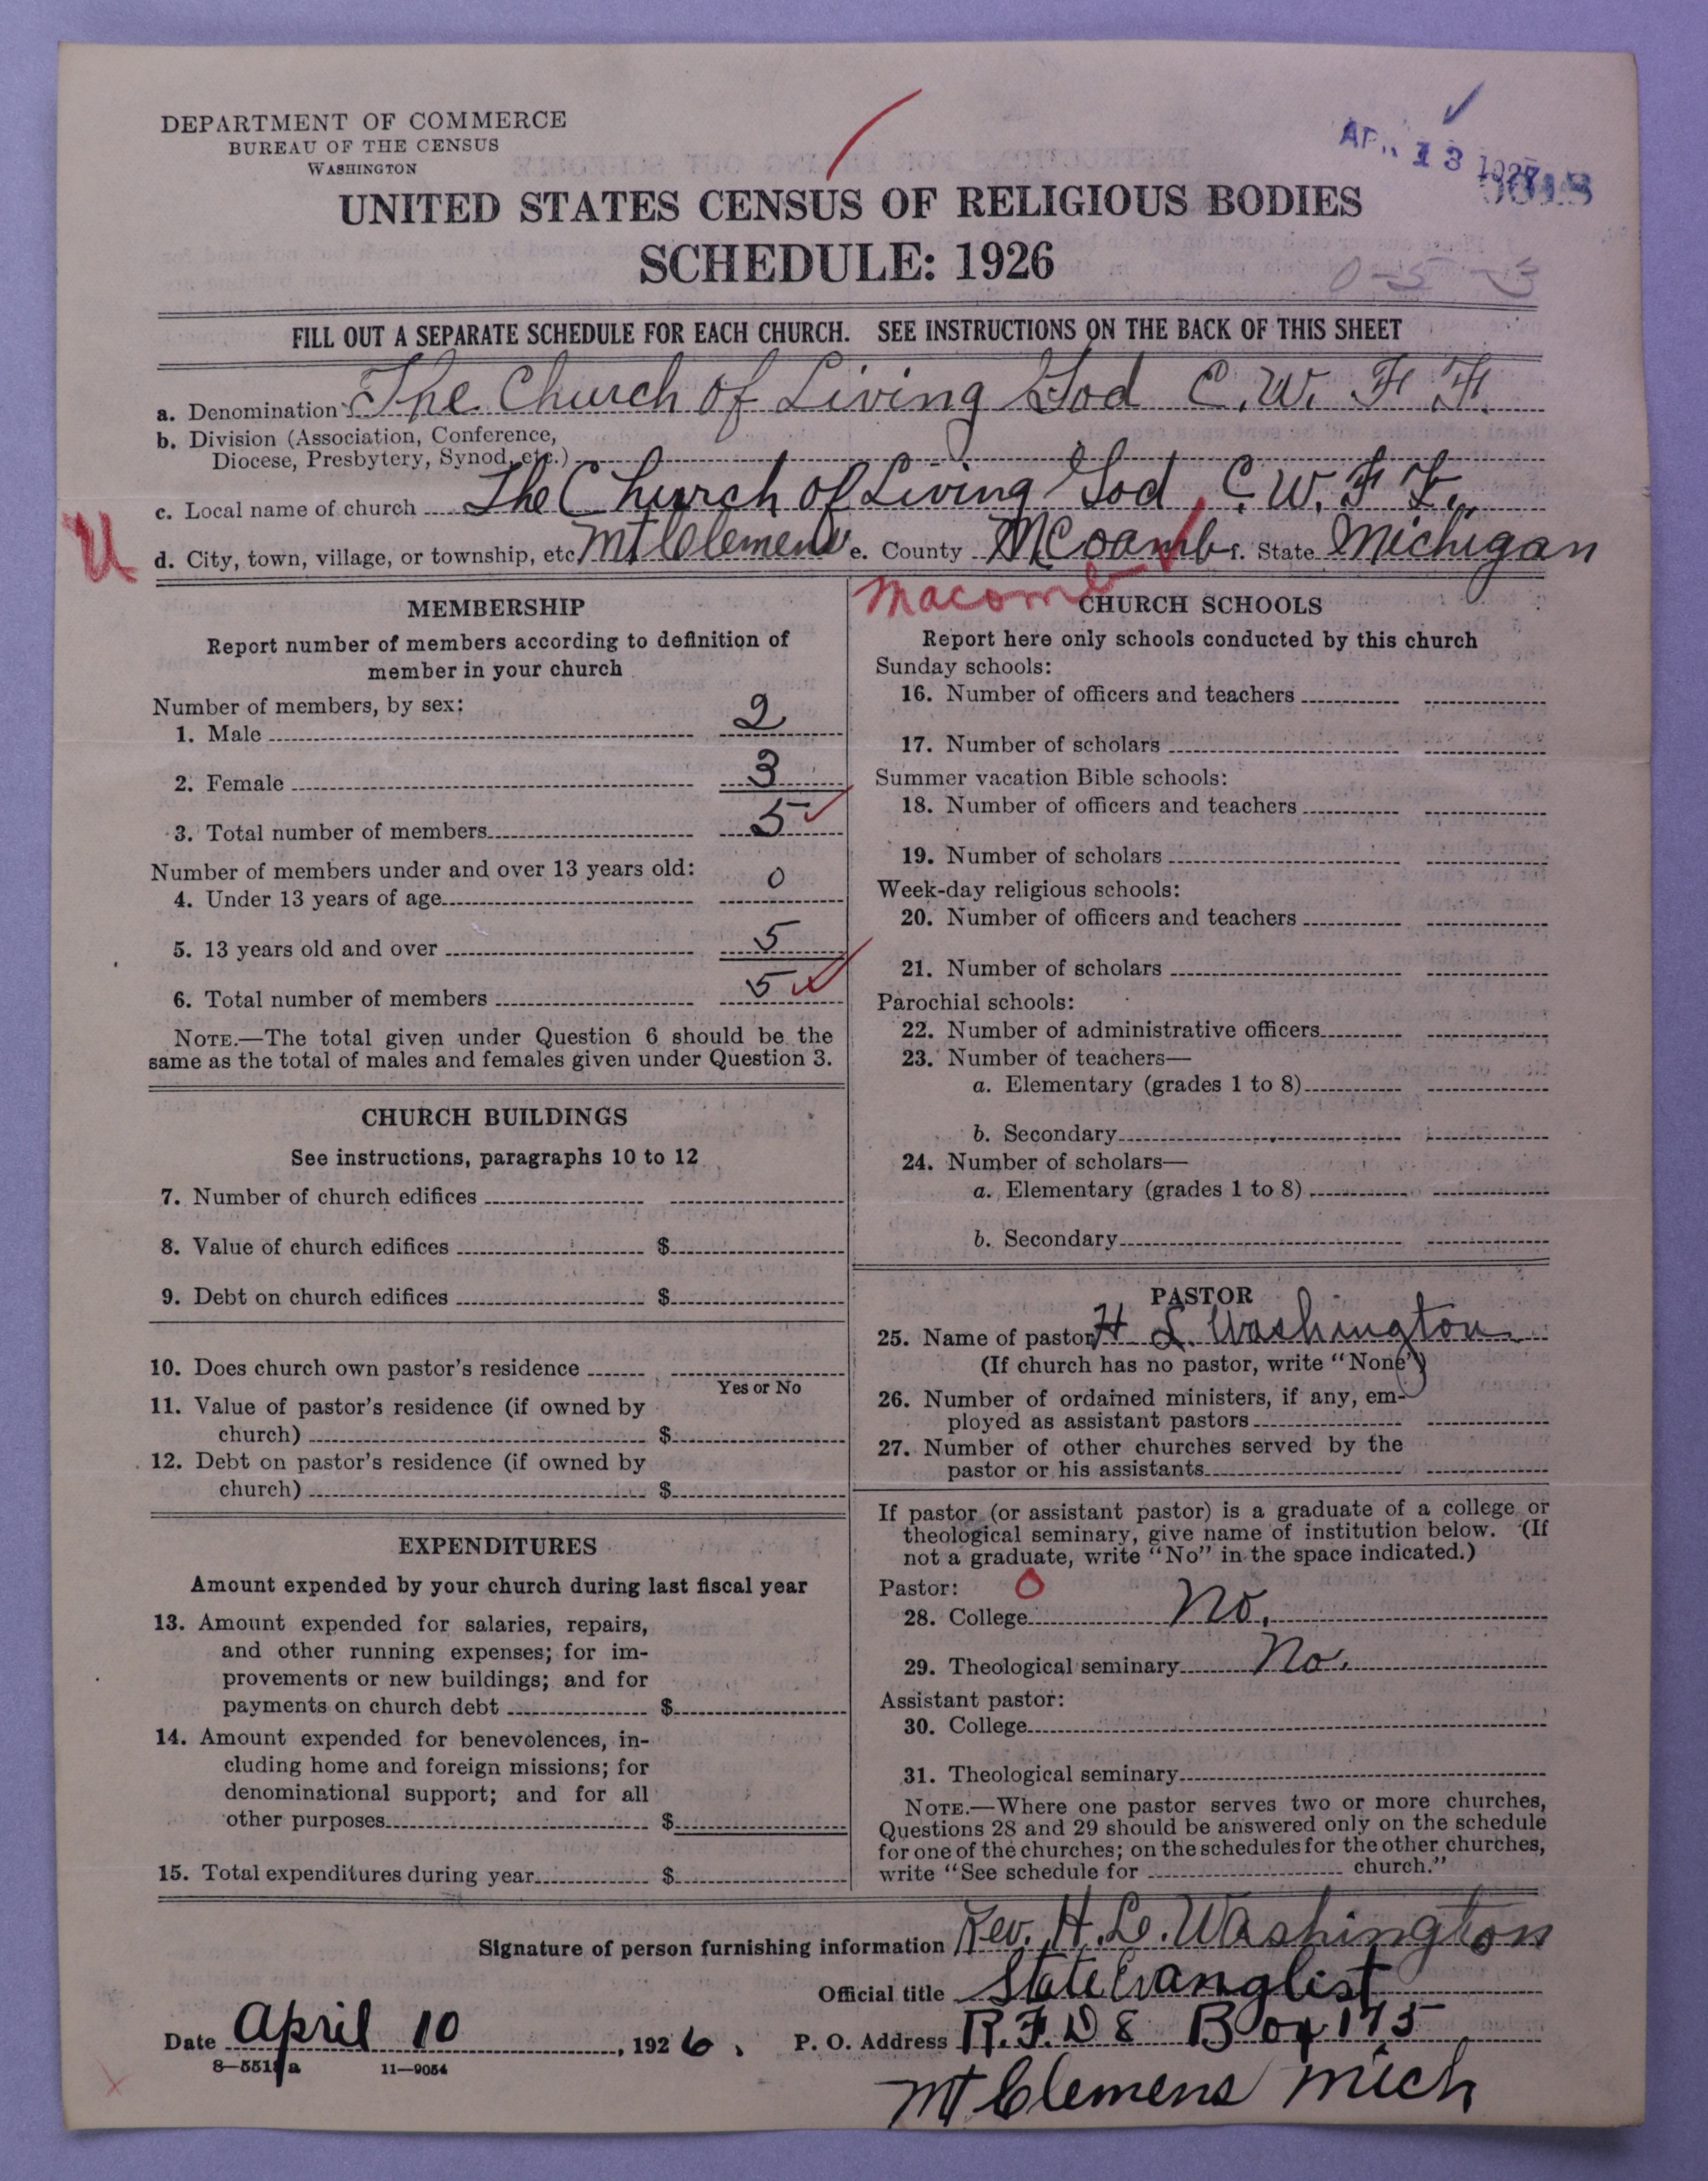 DEPARTMENT OF COMMERCE
BUREAU OF THE CENSUS
WASHINGTON
APR 13 1927
UNITED STATES CENSUS OF RELIGIOUS BODIES
SCHEDULE: 1926
FILL OUT A SEPARATE SCHEDULE FOR EACH CHURCH. SEE INSTRUCTIONS ON THE BACK OF THIS SHEET
a. Denomination The Church of Living God C. W. F. F.
b. Division (Association, Conference,
Diocese, Presbytery, Synod, etc.)
c. Local name of church The Church of Living God, C. W. F. F.,
U
d. City, town, village, or township, etc. Mt Clemens e. County McCoamb f. State Michigan
Macomb
MEMBERSHIP
Report number of members according to definition of
member in your church
Number of members, by sex:
1. Male 2
2. Female 3
3. Total number of members 5
Number of members under and over 13 years old:
4. Under 13 years of age 0
5. 13 years old and over 5
6. Total number of members 5
NOTE.—The total given under Question 6 should be the
same as the total of males and females given under Question 3.
CHURCH BUILDINGS
See instructions, paragraphs 10 to 12
7. Number of church edifices
8. Value of church edifices $
9. Debt on church edifices $
10. Does church own pastor's residence
Yes or No
11. Value of pastor's residence (if owned by
church) $
12. Debt on pastor's residence (if owned by
church) $
EXPENDITURES
Amount expended by your church during last fiscal year
13. Amount expended for salaries, repairs,
and other running expenses; for im-
provements or new buildings; and for
payments on church debt $
14. Amount expended for benevolences, in-
cluding home and foreign missions; for
denominational support; and for all
other purposes $
15. Total expenditures during year $
CHURCH SCHOOLS
Report here only schools conducted by this church
Sunday schools:
16. Number of officers and teachers
17. Number of scholars
Summer vacation Bible schools:
18. Number of officers and teachers
19. Number of scholars
Week-day religious schools:
20. Number of officers and teachers
21. Number of scholars
Parochial schools:
22. Number of administrative officers
23. Number of teachers—
a. Elementary (grades 1 to 8)
b. Secondary
24. Number of scholars—
a. Elementary (grades 1 to 8)
b. Secondary
PASTOR
25. Name of pastor H L. Washington
(If church has no pastor, write "None")
26. Number of ordained ministers, if any, em-
ployed as assistant pastors
27. Number of other churches served by the
pastor or his assistants
If pastor (or assistant pastor) is a graduate of a college or
theological seminary, give name of institution below. (If
not a graduate, write "No" in the space indicated.)
Pastor: 0
28. College No.
29. Theological seminary No.
Assistant pastor:
30. College
31. Theological seminary
NOTE.—Where one pastor serves two or more churches,
Questions 28 and 29 should be answered only on the schedule
for one of the churches; on the schedules for the other churches,
write "See schedule for church."
Signature of person furnishing information Rev. H. L. Washington
Official title State Evanglist
Date April 10, 1926. P. O. Address R. F. D 8 Box 175
8—551 a 11—9054
Mt Clemens Mich